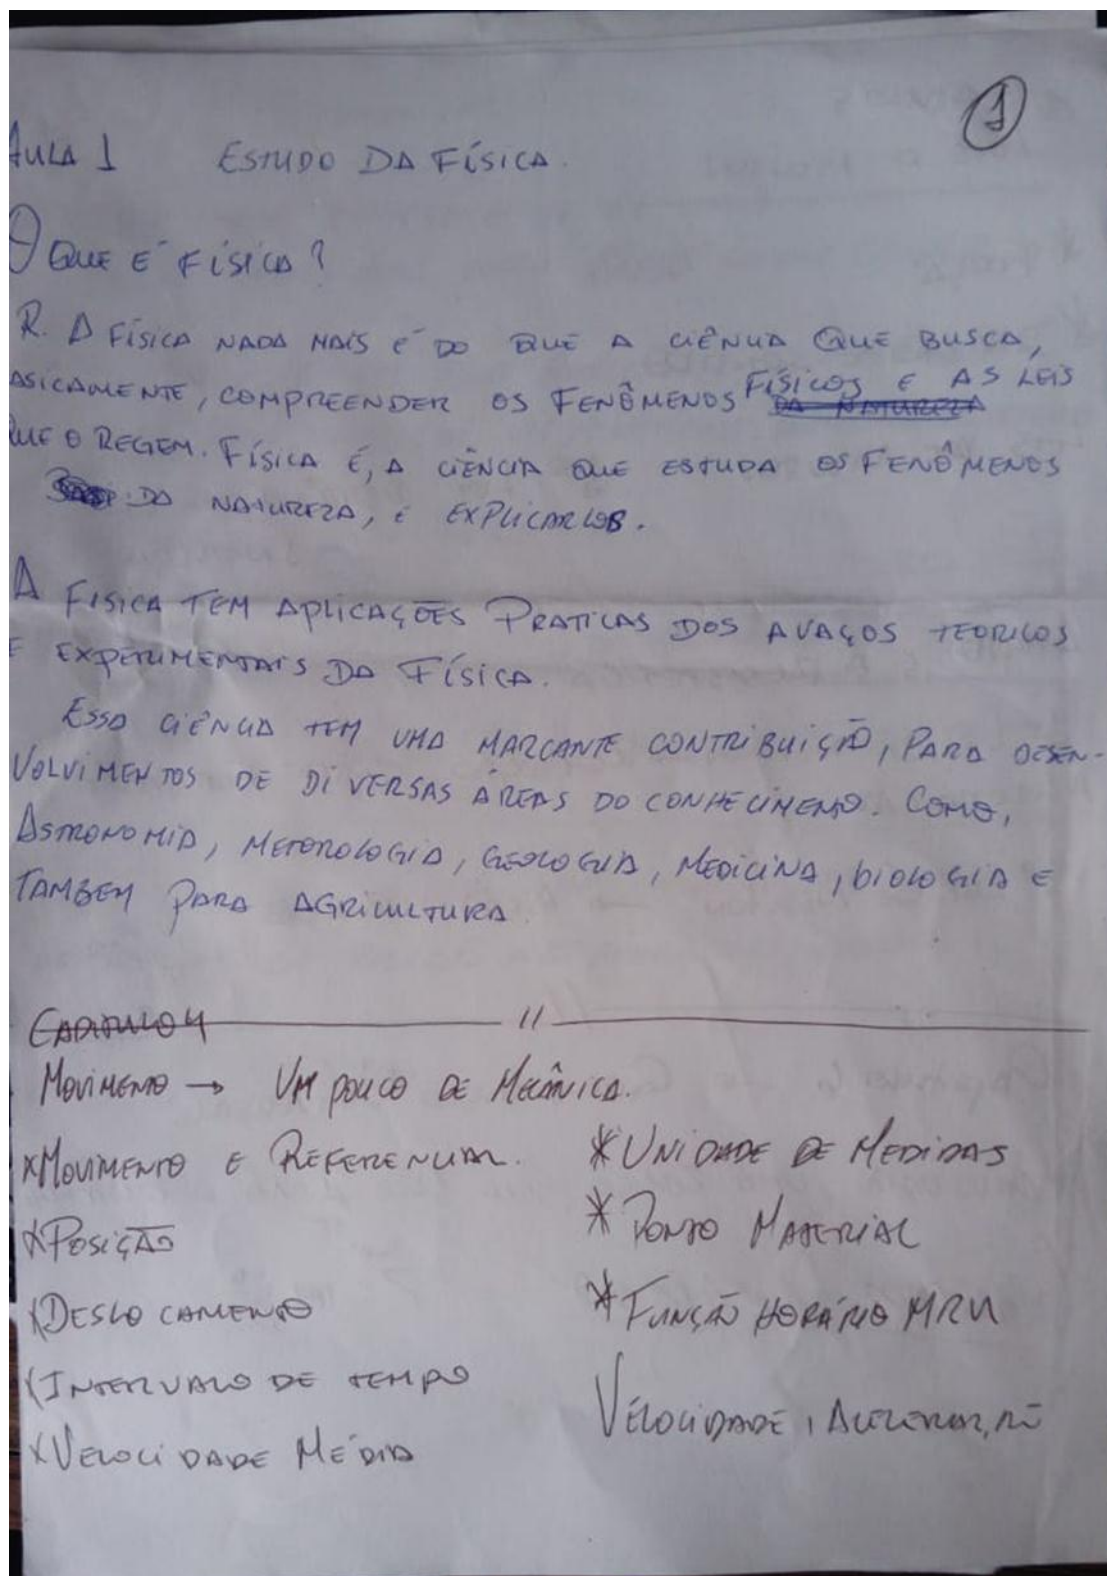 1
AULA 1 ESTUDO DA FÍSICA.
O QUE É FÍSICA?
R. A FÍSICA NADA MAIS É DO QUE A CIÊNCIA QUE BUSCA,
ASICAMENTE, COMPREENDER OS FENÔMENOS FÍSICOS E AS LEIS
DA NATUREZA
QUE O REGEM. FÍSICA É, A CIÊNCIA QUE ESTUDA OS FENÔMENOS
DA NATUREZA, E EXPLICAR LOS.
A FISICA TEM APLICAÇÕES PRATICAS DOS AVAÇOS TEORICOS
E EXPERIMENTAIS DA FÍSICA.
ESSA CIÊNCIA TEM UMA MARCANTE CONTRIBUIÇÃO, PARA DESEN-
VOLVIMENTOS DE DIVERSAS ÁREAS DO CONHECIMENTO. COMO,
ASTRONOMIA, METOROLOGIA, GEOLOGIA, MEDICINA, BIOLOGIA E
TAMBEM PARA AGRICULTURA.
CAPITULO 4 //
MOVIMENTO → UM POUCO DE MECÂNICA.
XMOVIMENTO E REFERENCIAL. * UNIDADE DE MEDIDAS
XPOSIÇÃO * PONTO MATERIAL
XDESLOCAMENTO * FUNÇÃO HORÁRIO MRU
XINTERVALO DE TEMPO VELOCIDADE, ACELERAÇÃO
XVELOCIDADE MÉDIA